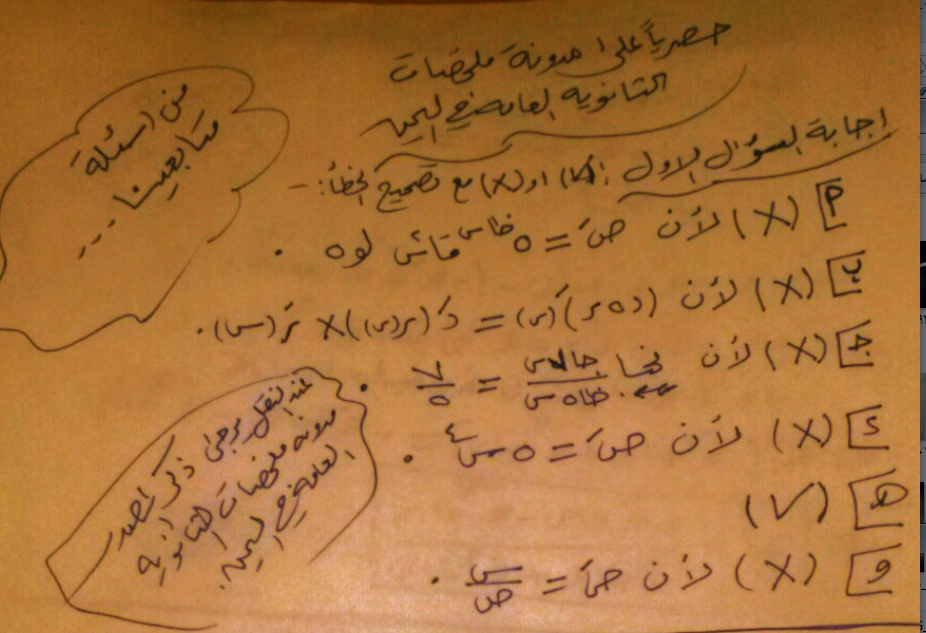 حصرياً على مدونة ملخصات
الثانوية العامة في اليمن
من اسئلة
متابعينا...
إجابة السؤال الاول : (✓) او (X) مع تصحيح الخطأ: -
أ (X) لأن صَ = ٥ظاس قاس٢ لو٥ .
ب (X) لأن (د٥ر)َ(س) = دَ(ر(س)) X رَ(س) .
ج (X) لأن نهـا جا٧س / ظا٥س = ٧ / ٥ .
س←٠
د (X) لأن صَ = ٥س٤ .
هـ (✓)
و (X) لأن صَ = س / ص .
عند النقل يرجى ذكر المصدر
مدونة ملخصات الثانوية
العامة في اليمن.